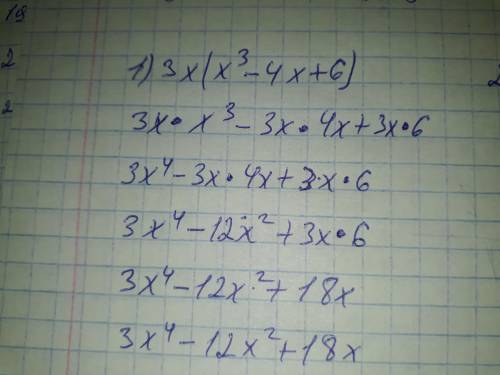 19
2
1) 3x(x³-4x+6)
2
2
3x•x³-3x•4x+3x•6
3x⁴-3x•4x+3•x•6
3x⁴-12x²+3x•6
3x⁴-12x²+18x
3x⁴-12x²+18x